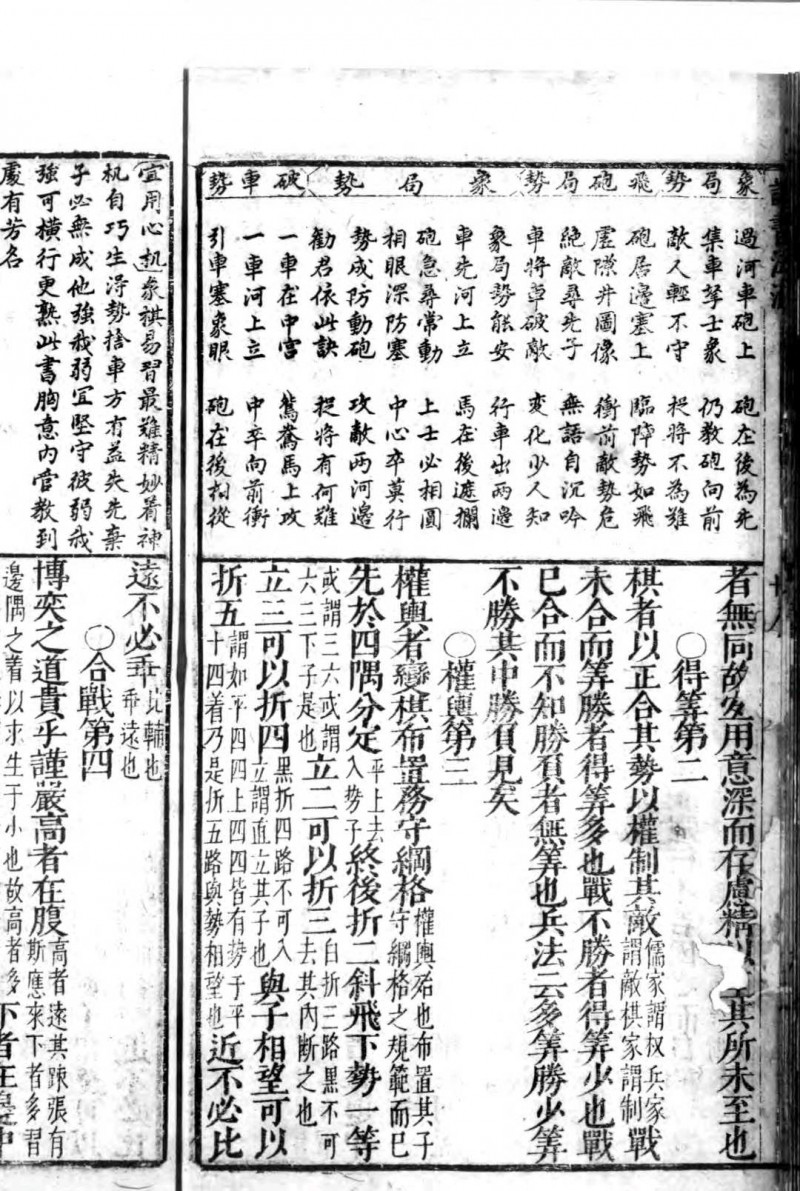 象局勢 飛砲局勢 象局勢 破車勢
過河車砲上 砲在後為先
集車孥士象 仍教砲向前
敵人輕不守 捉將不為難
砲居邊塞上 臨陣勢如飛
虛隙井圖像 衝前敵勢危
絕敵尋先子 無語自沉吟
車將卓破敵 變化少人知
象局勢能安 行車出兩邊
車先河上立 馬在後遮攔
砲急尋常動 上士必相圓
相眼深防塞 中心卒莫行
勢成防動砲 攻敵兩河邊
勸君依此訣 捉將有何難
一車在中宮 鴛鴦馬上攻
一車河上立 中卒向前衝
引車塞象眼 砲在後相從
者無同故宜用意深而存慮精以其所未至也
○得筭第二
棋者以正合其勢以權制其敵儒家謂权兵家謂敵棋家謂制戰
未合而筭勝者得筭多也戰不勝者得筭少也戰
已合而不知勝負者無筭也兵法云多筭勝少筭
不勝其中勝負見矣
○權輿第三
權輿者變棋布置務守綱格權輿始也布置其子守綱格之規範而已
先於四隅分定平上去入势子終後折二斜飛下勢一等
或謂三六或謂六三下子是也立二可以折三白折三路黑不可去其內断之也
立三可以折四黑折四路不可入立謂直立其子也與子相望可以
折五謂如平四四上四四皆有势于平十四着乃是折五路與勢相望也近不必比
宜用心机象棋易習最难精妙着神
机自巧生得勢捨車方有益失先棄
子必無成他強我弱宜堅守彼弱我
強可橫行更熟此書胸意內管教到
處有芳名
遠不必乖比輔也乖遠也
○合戰第四
博奕之道貴乎謹嚴高者在腹高者遠其踈張有斯應來下者多習
邊隅之着以求生于小也故高者多下者在邊中